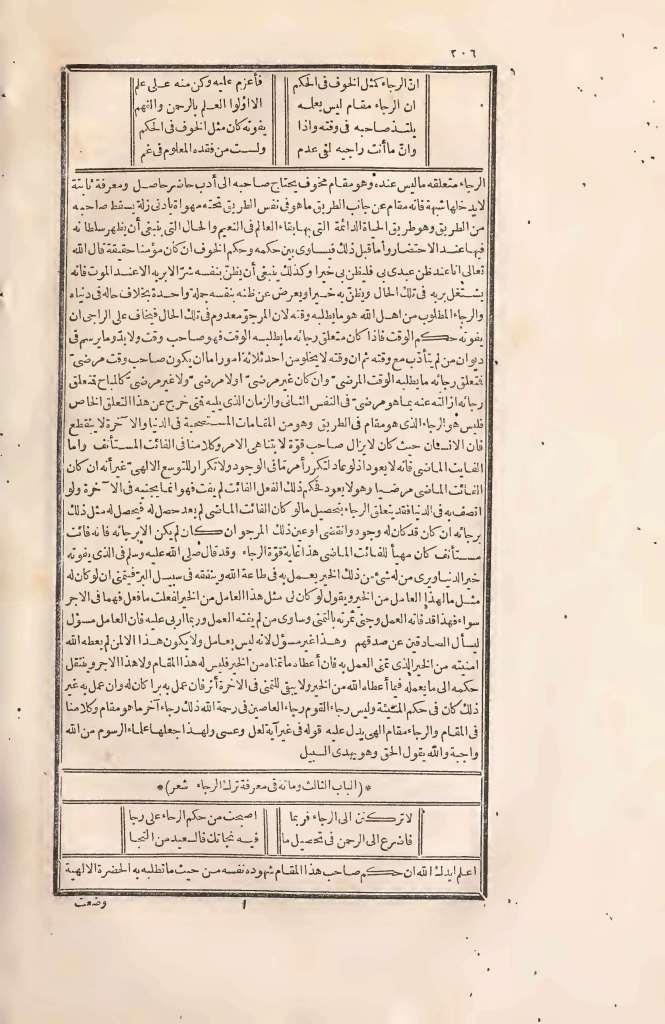 ٢٠٦
ان الرجاء كمثل الخوف في الحكم فاعزم عليه وكن منه على علم
ان الرجاء مقام ليس يعلمه الا اولوا العلم بالرحمن والفهم
يلتذ صاحبه في وقته واذا يفوته كان مثل الخوف في الحكم
وان ما أنت راجيه لفي عدم ولست من فقده المعلوم في غم
الرجاء متعلقه ما ليس عنده وهو مقام مخوف يحتاج صاحبه الى أدب حاضر حاصل ومعرفة ثابتة
لا يدخلها شبهة فانه مقام عن جانب الطريق ما هو في نفس الطريق تحته مهواة بادنى زلة يسقط صاحبه
من الطريق وهو طريق الحياة الدائمة التي بها بقاء العالم في النعيم والحال التي ينبغي أن يظهر سلطانه
فيها عند الاحتضار وأما قبل ذلك فيساوى بين حكمه وحكم الخوف ان كان مؤمنا حقيقة قال الله
تعالى انا عند ظن عبدى بي فليظن بي خيرا وكذلك ينبغي أن يظن بنفسه شرّا لا بربه الا عند الموت فانه
يشتغل بربه في تلك الحال ويظن به خيرا ويعرض عن ظنه بنفسه جملة واحدة بخلاف حاله في دنياه
والرجاء المطلوب من اهل الله هو ما يطلبه وقته لان المرجوّ معدوم في تلك الحال فيخاف على الراجى ان
يفوته حكم الوقت فاذا كان متعلق رجائه ما يطلبه الوقت فهو صاحب وقت ولا بدّ وما يرسم في
ديوان من لم يتأدّب مع وقته ثم ان وقته لا يخلو من احد ثلاثة امور اما ان يكون صاحب وقت مرضىّ
فمتعلق رجائه ما يطلبه الوقت المرضىّ وان كان غير مرضىّ اولا مرضىّ ولا غير مرضىّ كالمباح فمتعلق
رجائه ازالته عنه بما هو مرضىّ في النفس الثانى والزمان الذى يليه فمتى خرج عن هذا التعلق الخاص
فليس هو الرجاء الذى هو مقام في الطريق وهو من المقامات المستصحبة في الدنيا والآخرة لا ينقطع
فان الانسان حيث كان لا يزال صاحب قوة لا يتناهى الامر وكلامنا في الفائت المستأنف واما
الفايت الماضى فانه لا يعود اذ لو عاد لتكرر أمر ما في الوجود ولا تكرار للتوسع الالهىّ غير أنه ان كان
الفائت الماضى مرضيا وهو لا يعود فحكم ذلك الفعل الفائت لم يفت فهو انما يجنيه في الآخرة ولو
اتصف به في الدنيا فقد يتعلق الرجاء بتحصيل ما لو كان الفائت الماضى لم يعد حصل له فيحصل له مثل ذلك
برجائه ان كان قد كان له وجود وانقضى او عين ذلك المرجو ان كان لم يكن الا برجائه فانه فائت
مستأنف كان مهيأ للفائت الماضى هذا غاية قوة الرجاء وقد قال صلى الله عليه وسلم في الذى يفوته
خير الدنيا ويرى من له شئ من ذلك الخير يعمل به في طاعة الله وينفقه في سبيل البرّ فيتمنى ان لو كان له
مثل ما لهذا العامل من الخير ويقول لو كان لى مثل هذا العامل من الخير لفعلت ما فعل فهما في الاجر
سواء فهذا قد فاته العمل وجنى ثمرته بالتمنى وساوى من لم يفته العمل وربما اربى عليه فان العامل مسؤل
ليسأل الصادقين عن صدقهم وهذا غير مسؤل لانه ليس بعامل ولا يكون هذا الا لمن لم يعطه الله
امنيته من الخير الذى تمنى العمل به فان أعطاه ما تمناه من الخير فليس له هذا المقام ولا هذا الاجر وينتقل
حكمه الى ما يعمله فيما أعطاه الله من الخير ولا يبقى للتمنى في الآخرة أثر فان عمل به برا كان له وان عمل به غير
ذلك كان في حكم المشيئة وليس رجاء القوم رجاء العاصين في رحمة الله ذلك رجاء آخر ما هو مقام وكلامنا
في المقام والرجاء مقام الهى يدل عليه قوله في غير آية لعل وعسى ولهذا جعلها علماء الرسوم من الله
واجبة والله يقول الحق وهو يهدى السبيل
*(الباب الثالث ومائة في معرفة ترك الرجاء شعر)*
لا تركنن الى الرجاء فربما اصبحت من حكم الرجاء على رجا
فاضرع الى الرحمن في تحصيل ما فيه نجاتك فالسعيد من النجا
اعلم ايدك الله ان حكم صاحب هذا المقام شهوده نفسه من حيث ما تطلبه به الحضرة الالهية
١ وضعت